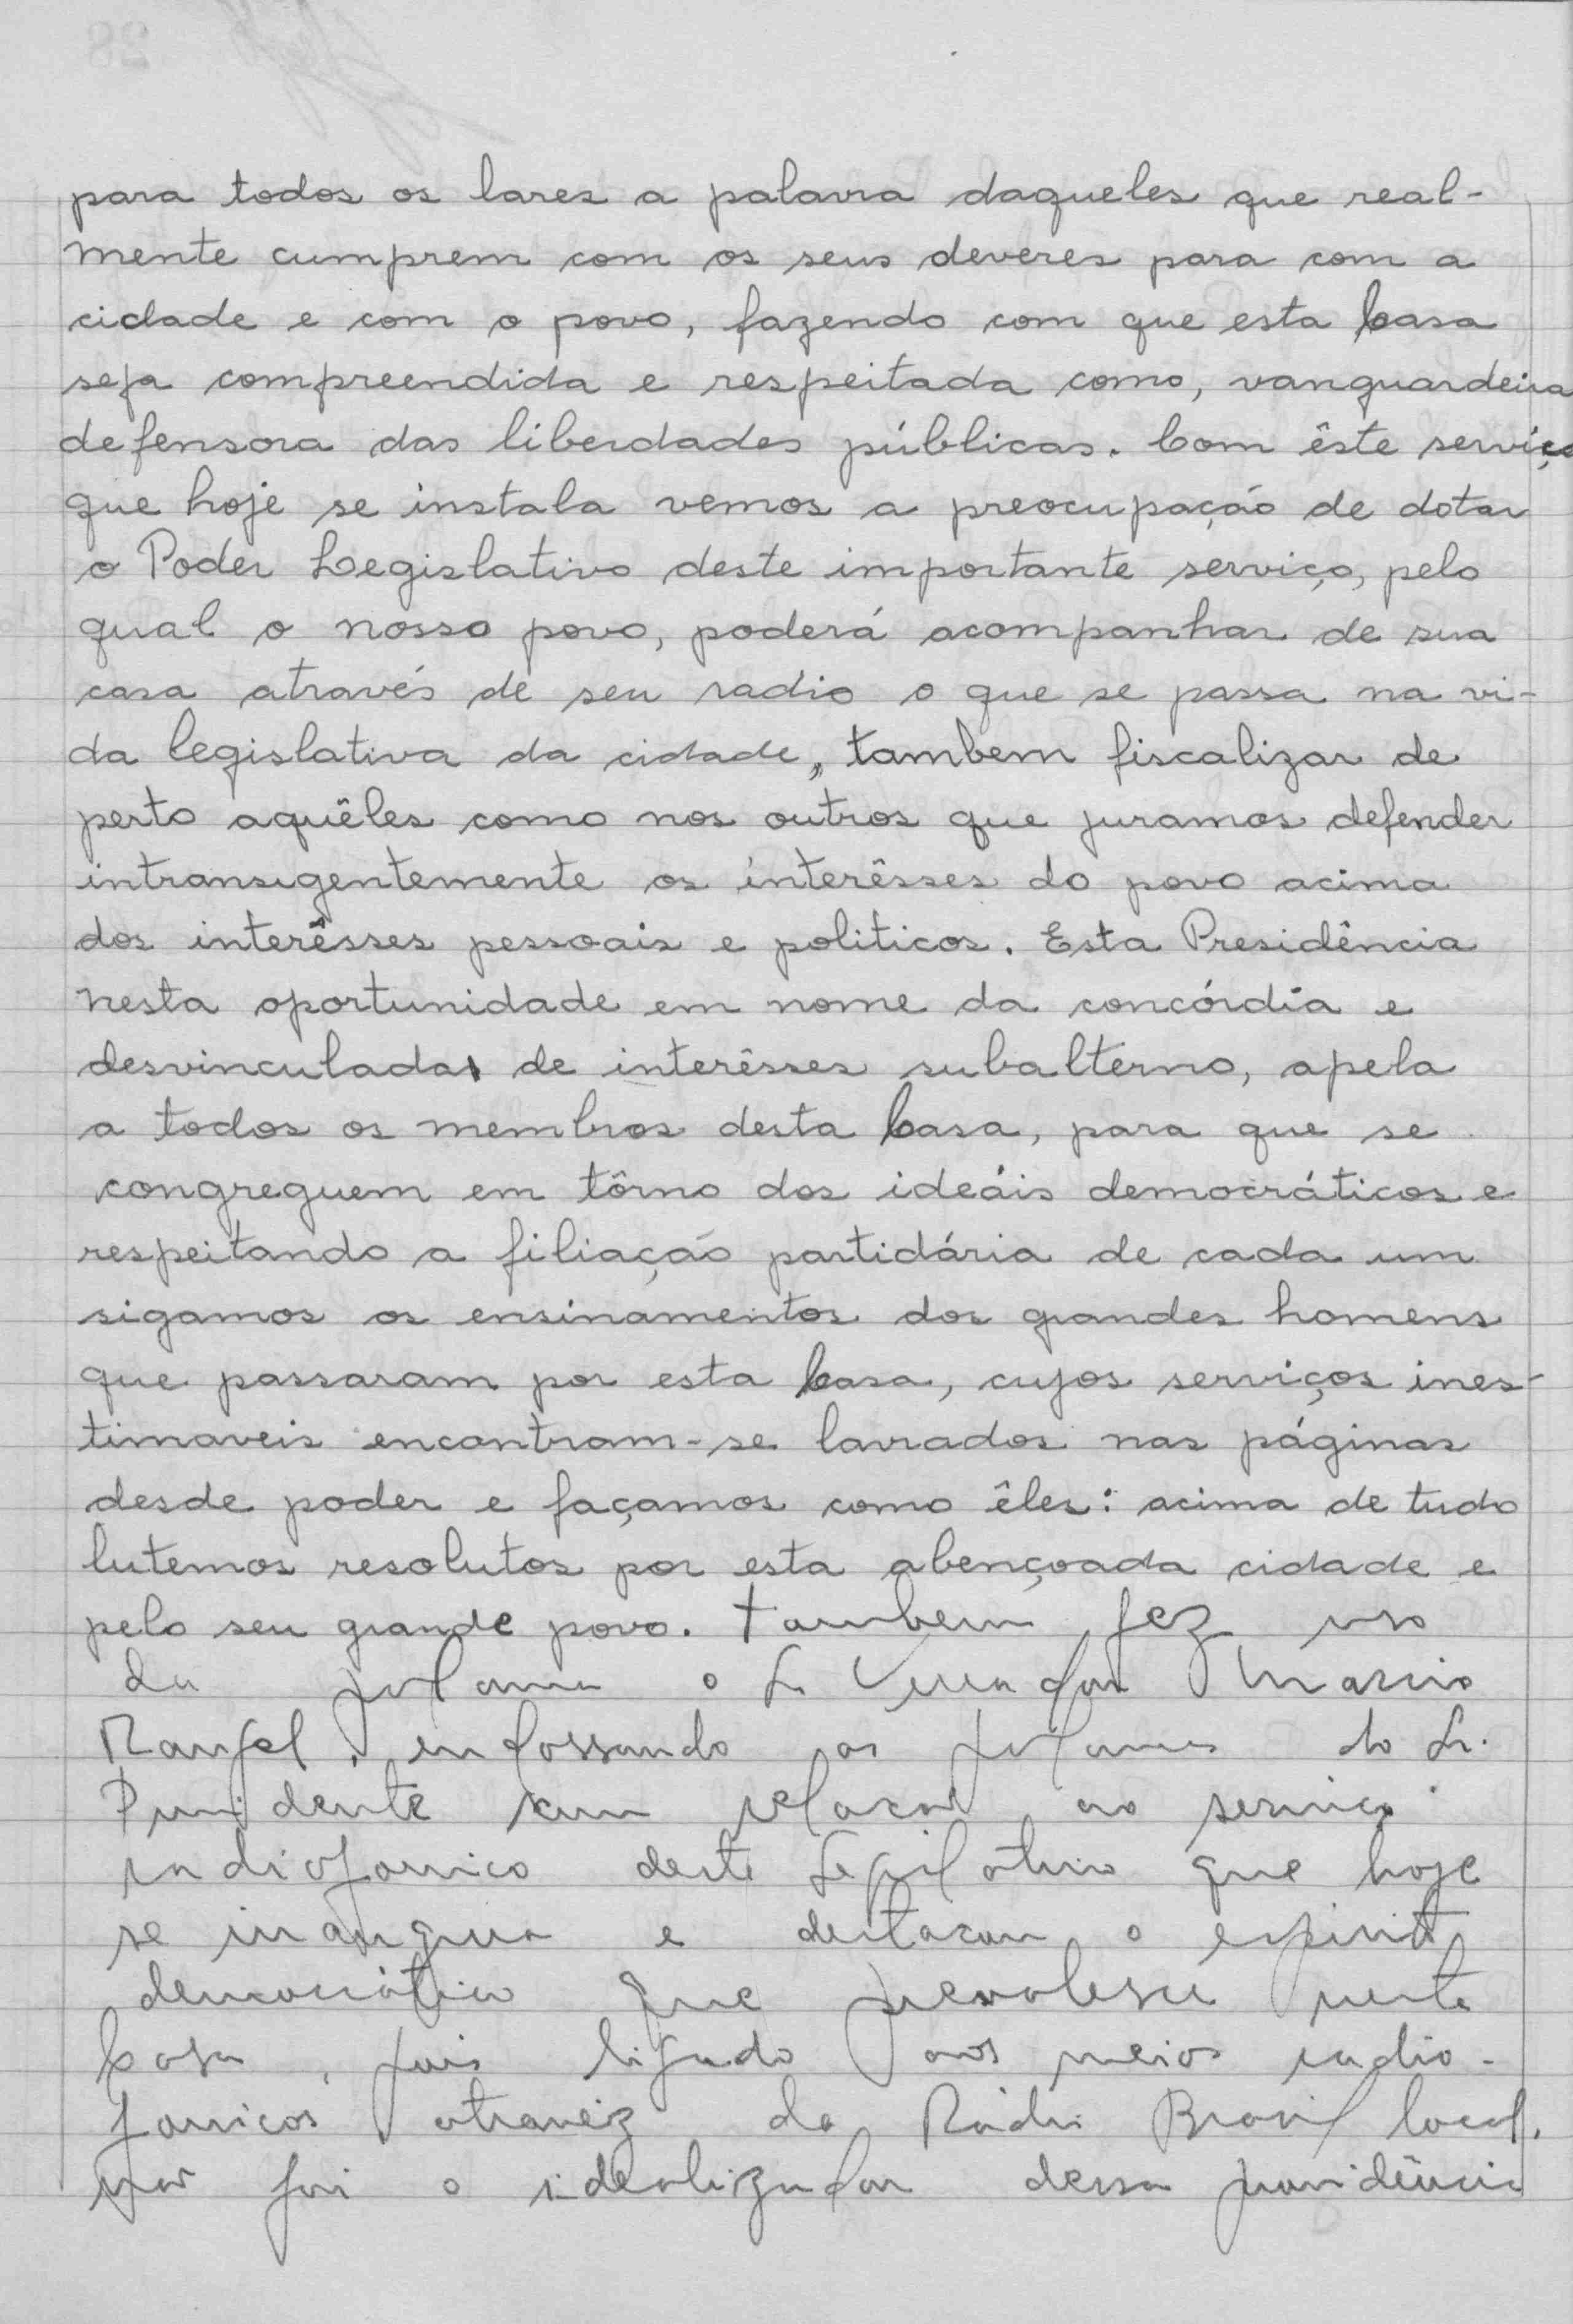 para todos os lares a palavra daqueles que real-
mente cumprem com os seus deveres para com a
cidade e com o povo, fazendo com que esta Casa
seja compreendida e respeitada como, vanguardeira
defensora das liberdades públicas. Com êste serviço
que hoje se instala vemos a preocupação de dotar
o Poder Legislativo deste importante serviço, pelo
qual o nosso povo, poderá acompanhar de sua
casa através de seu radio o que se passa na vi-
da legislativa da cidade, tambem fiscalizar de
perto aquêles como nos outros que juramos defender
intransigentemente os interêsses do povo acima
dos interêsses pessoais e politicos. Esta Presidência
nesta oportunidade em nome da concórdia e
desvinculada de interêsses subalterno, apela
a todos os membros desta Casa, para que se
congreguem em tôrno dos ideáis democráticos e
respeitando a filiação partidária de cada um
sigamos os ensinamentos dos grandes homens
que passaram por esta Casa, cujos serviços ines-
timaveis encontram-se lavrados nas páginas
desde poder e façamos como êles: acima de tudo
lutemos resolutos por esta abençoada cidade e
pelo seu grande povo. Tambem fez uso
da palavra o Sr Vereador Marcio
Rangel, endossando as palavras do Sr.
Presidente com relação ao serviço
radiofonico deste Legislativo que hoje
se inaugura e destacou o espirito
democrático que prevalesce nesta
Casa, pois ligado aos meios radio-
fonicos atravéz da Rádio Brasil local,
não foi o idealizador dessa providência